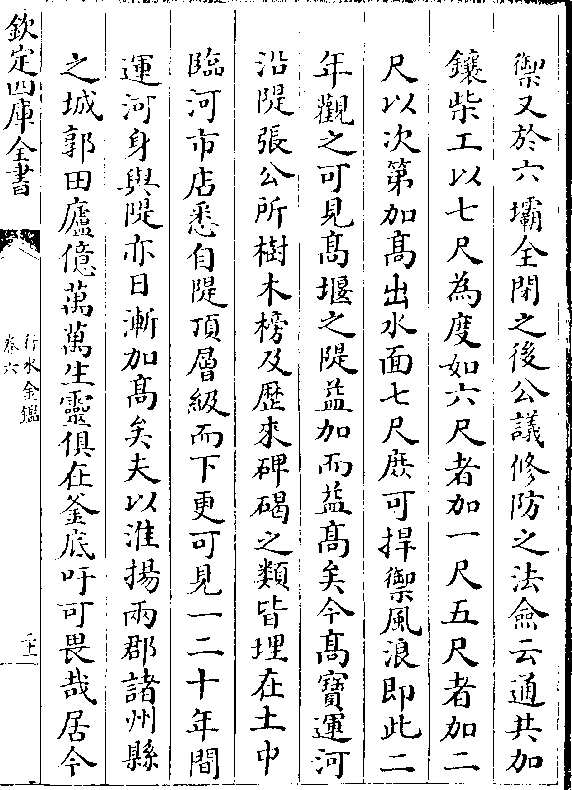 禦又於六壩全閉之後公議修防之法僉云通共加
鑲柴工以七尺為度如六尺者加一尺五尺者加二
尺以次第加髙出水面七尺庶可捍禦風浪即此二
年觀之可見髙堰之隄益加而益髙矣今髙寶運河
沿隄張公所樹木榜及歴來碑碣之類皆埋在土中
臨河市店悉自隄頂層級而下更可見一二十年間
運河身與隄亦日漸加髙矣夫以淮揚兩郡諸州縣
之城郭田廬億萬萬生靈俱在釜底吁可畏哉居今
欽定四庫全書
行水金鑑
卷六